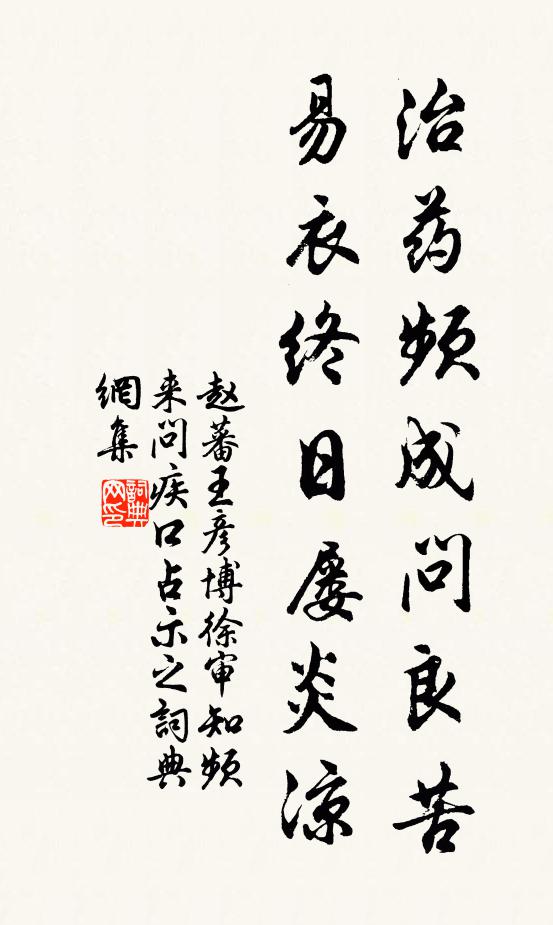 治药频成问良苦
易衣终日屡炎凉
赵蕃王彦博徐审知频
来问疾口占示之詞典
網集
詞典网印